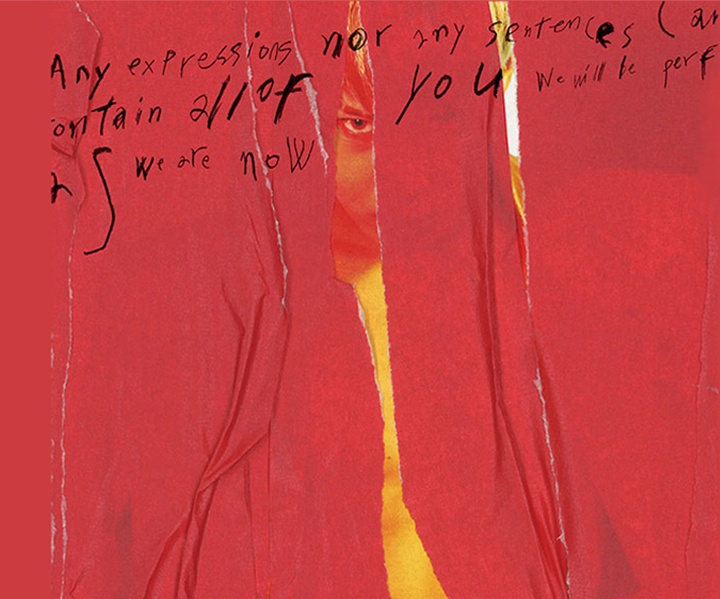 Any expressions nor any sentences can
ontain all of you We will be perf
as we are now